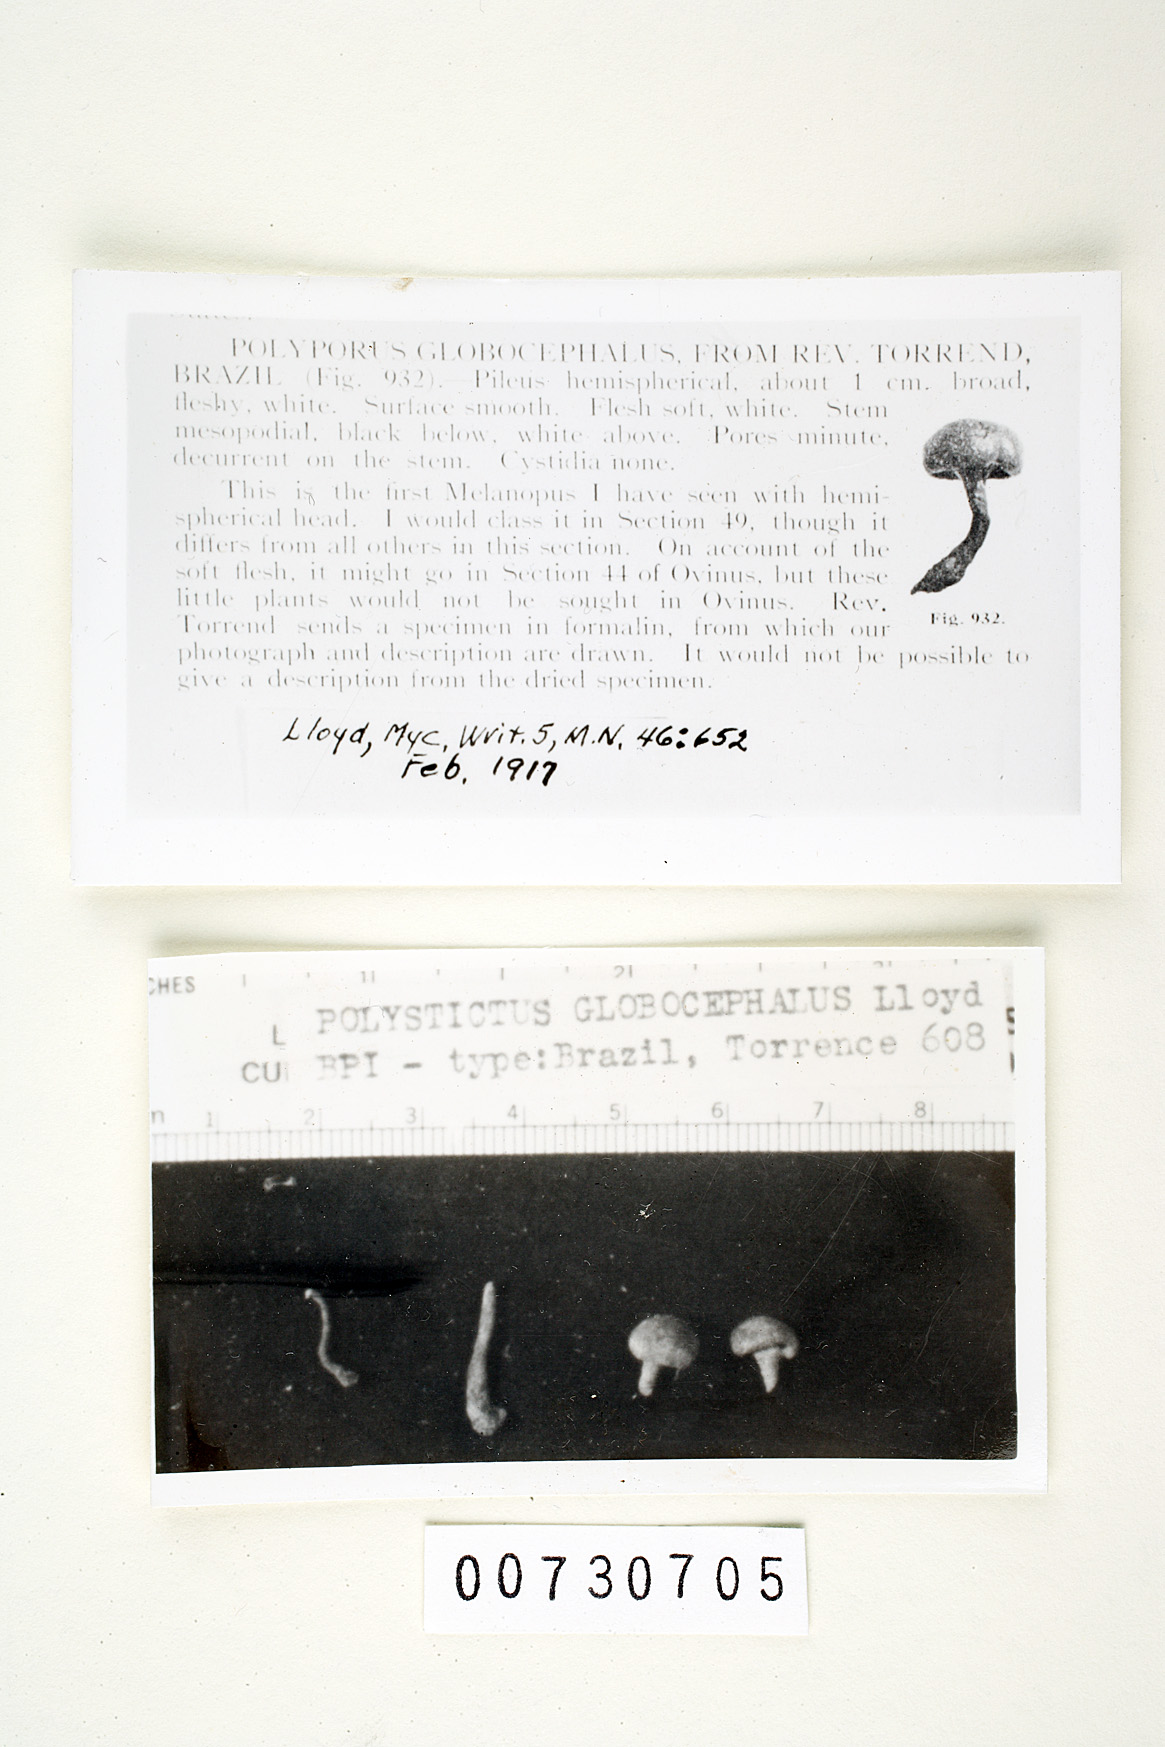 POLYPORUS GLOBOCEPHALUS, FROM REV. TORREND,
BRAZIL (Fig. 932).—Pileus hemispherical, about 1 cm. broad,
fleshy, white. Surface smooth. Flesh soft, white. Stem
mesopodial, black below, white above. Pores minute,
decurrent on the stem. Cystidia none.
This is the first Melanopus I have seen with hemi-
spherical head. I would class it in Section 49, though it
differs from all others in this section. On account of the
soft flesh, it might go in Section 44 of Ovinus, but these
little plants would not be sought in Ovinus. Rev.
Torrend sends a specimen in formalin, from which our
photograph and description are drawn. It would not be possible to
give a description from the dried specimen.
Fig. 932.
Lloyd, Myc. Writ. 5, M.N. 46:652
Feb. 1917
CHES 11 21
L POLYSTICTUS GLOBOCEPHALUS Lloyd
CU BPI - type:Brazil, Torrence 608
1 2 3 4 5 6 7 8
00730705